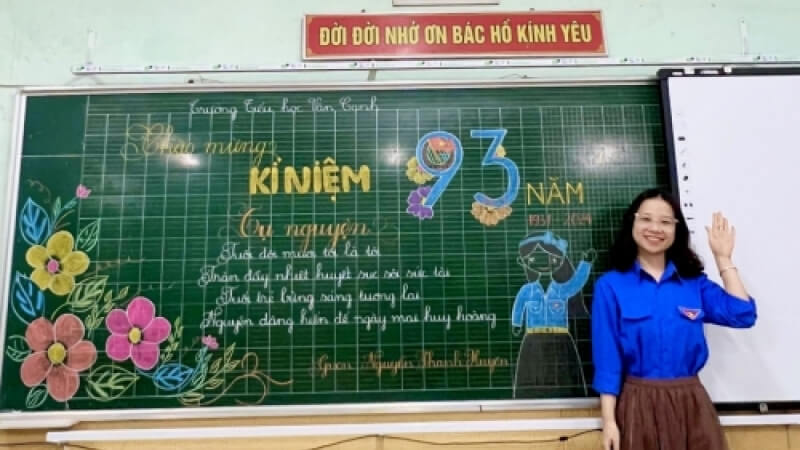 ĐỜI ĐỜI NHỚ ƠN BÁC HỒ KÍNH YÊU
Trường Tiểu học Vân Canh
Chào mừng
KỈ NIỆM
93
NĂM
1931 2024
Tự nguyện
Tuổi đôi mươi tôi là tờ
Tràn đầy nhiệt huyết sục sôi sức tài
Tuổi trẻ bừng sáng tương lai
Nguyện dâng hiến để ngày mai huy hoàng
Nguyễn Thanh Huyền